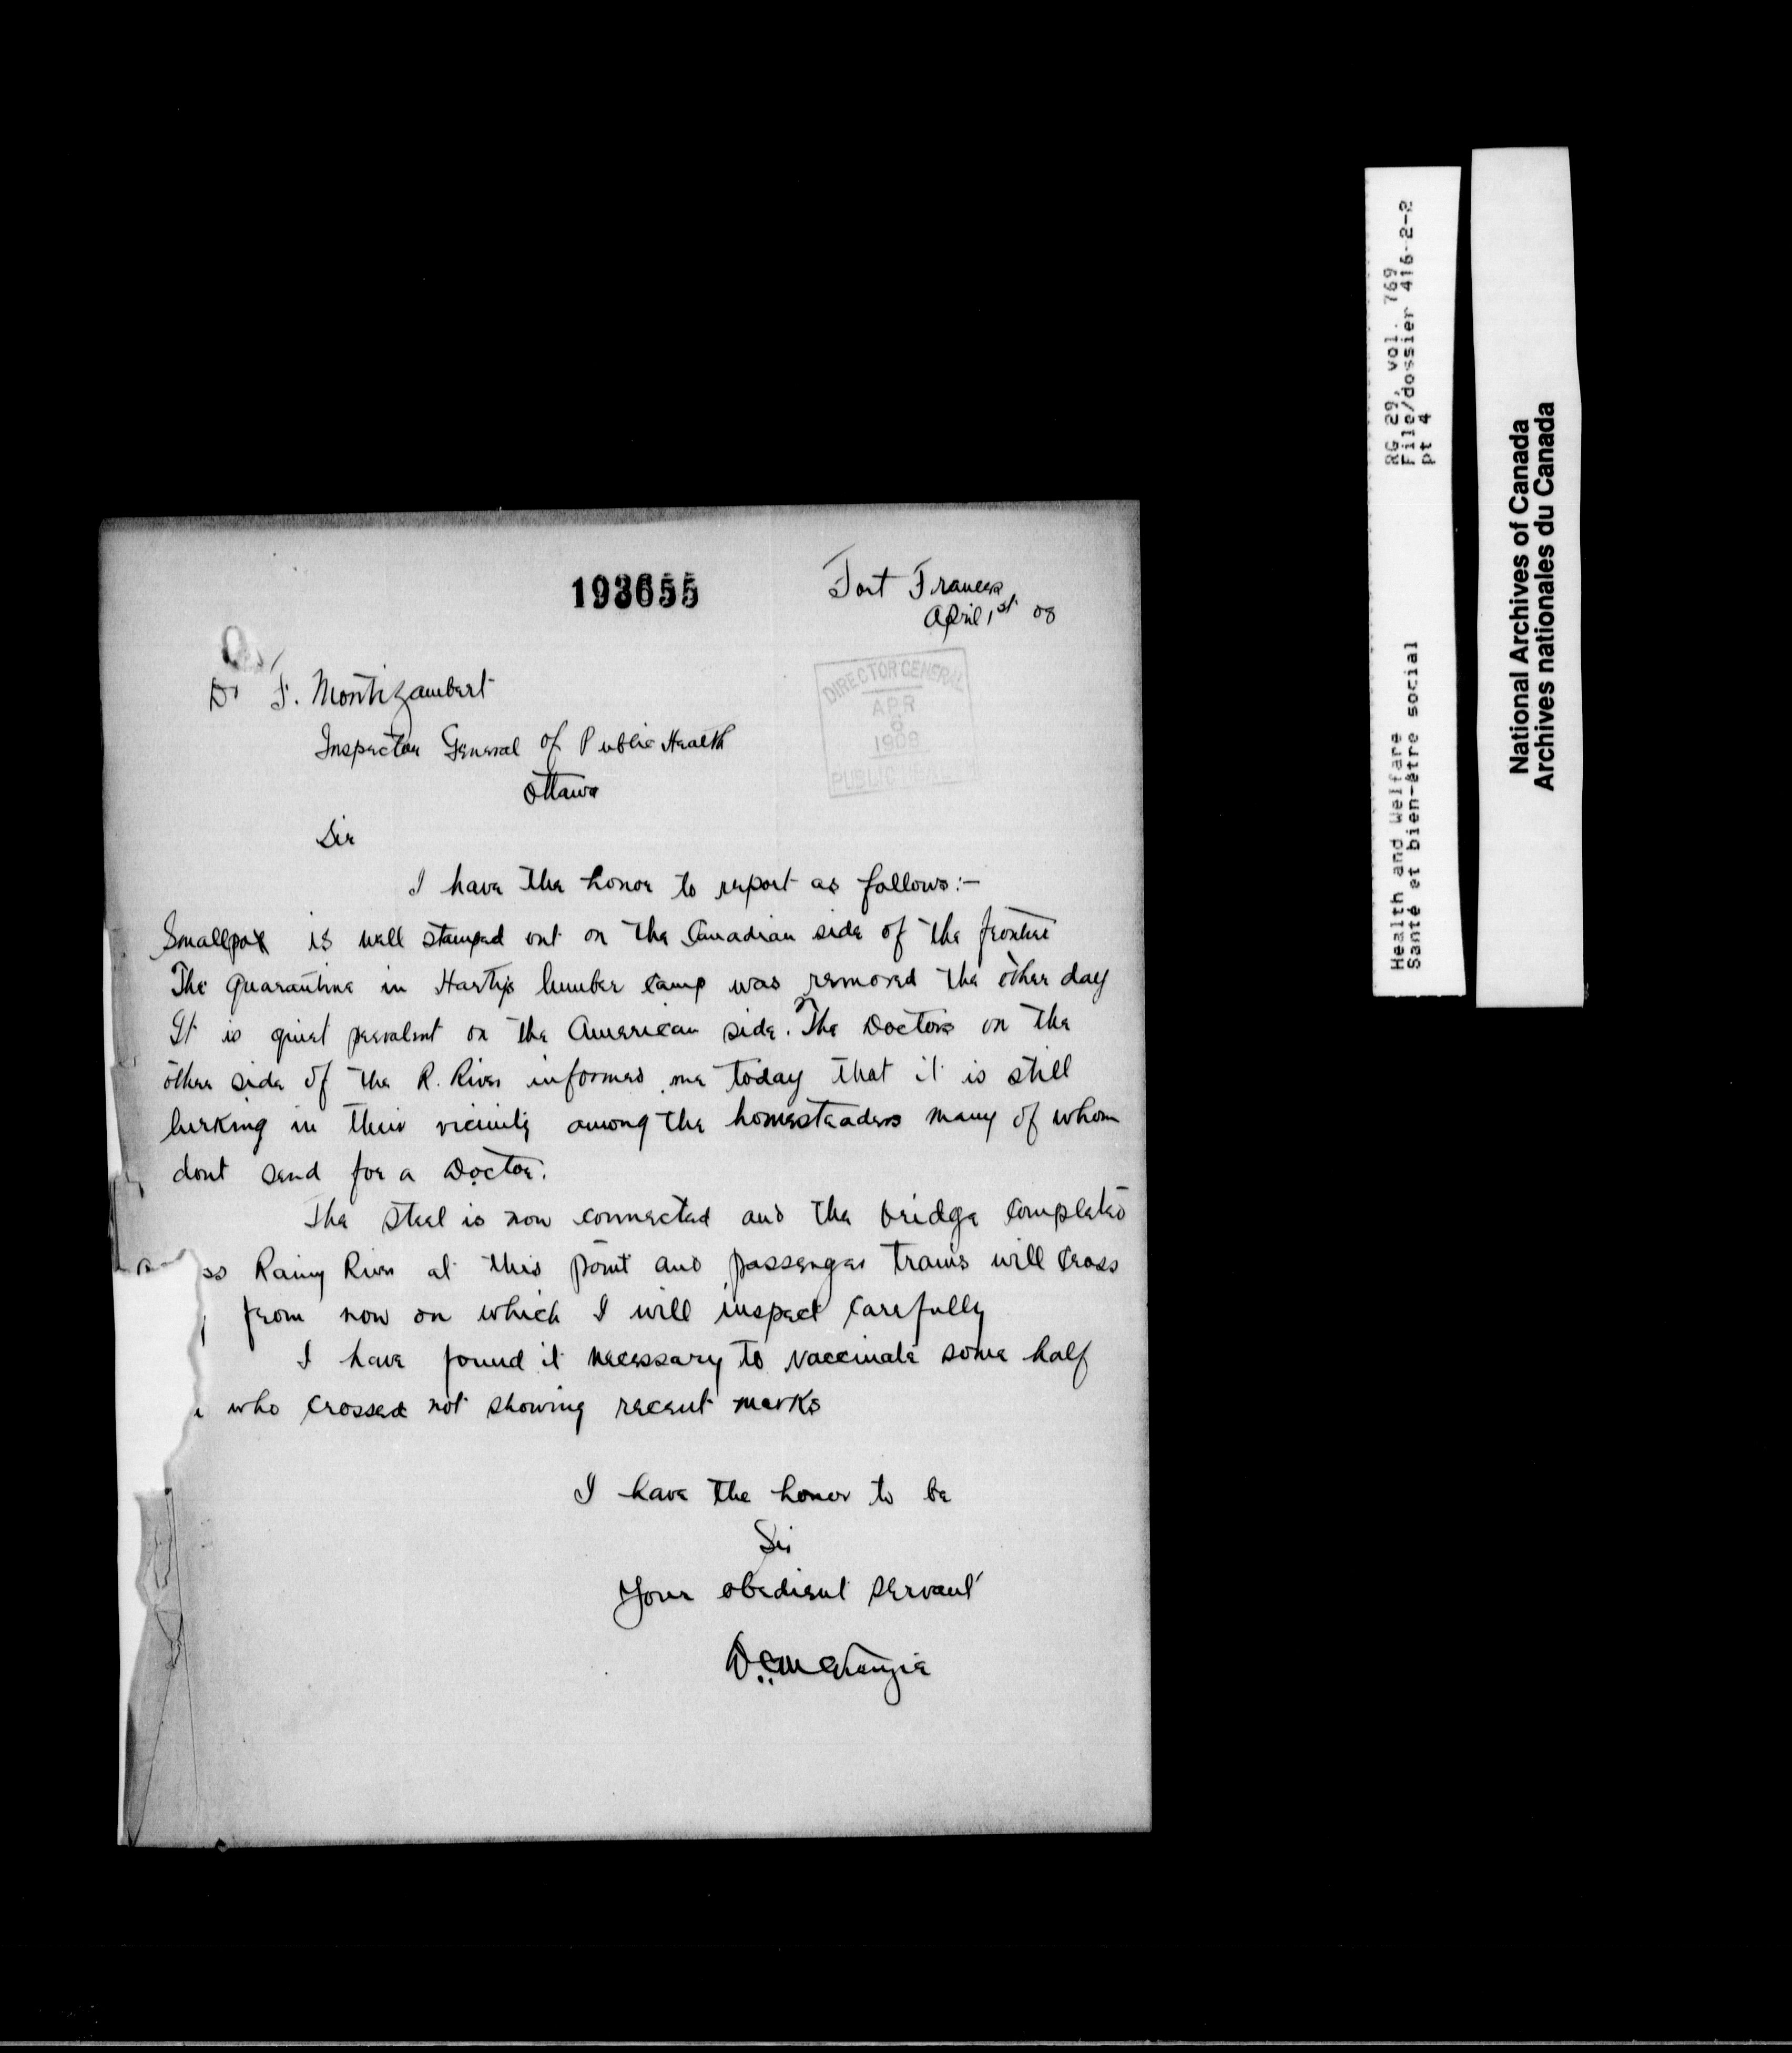 193655
Fort Frances
April 1st 08
DIRECTOR GENERAL
APR
6
1908
PUBLIC HEALTH
Dr F. Montizambert
Inspector General of Public Health
Ottawa
Sir
I have the honor to report as follows:-
Smallpox is well stamped out on the Canadian side of the frontier
The Quarantine in lumber camp was removed the other day
It is quiet prevalent on the American side. The Doctors on the
other side of the R. River informed me today that it is still
lurking in their vicinity among the homesteaders many of whom
dont send for a Doctor.
The steel is now connected and the bridge completed
ss Rainy River at this point and passenger trains will cross
from now on which I will inspect carefully
I have found it necessary to vaccinate some half
who crossed not showing recent marks
I have the honor to be
Sir
Your obedient servant
RG 29, vol. 769
File/dossier 416-2-2
pt 4
Health and Welfare
Santé et bien-être social
National Archives of Canada
Archives nationales du Canada